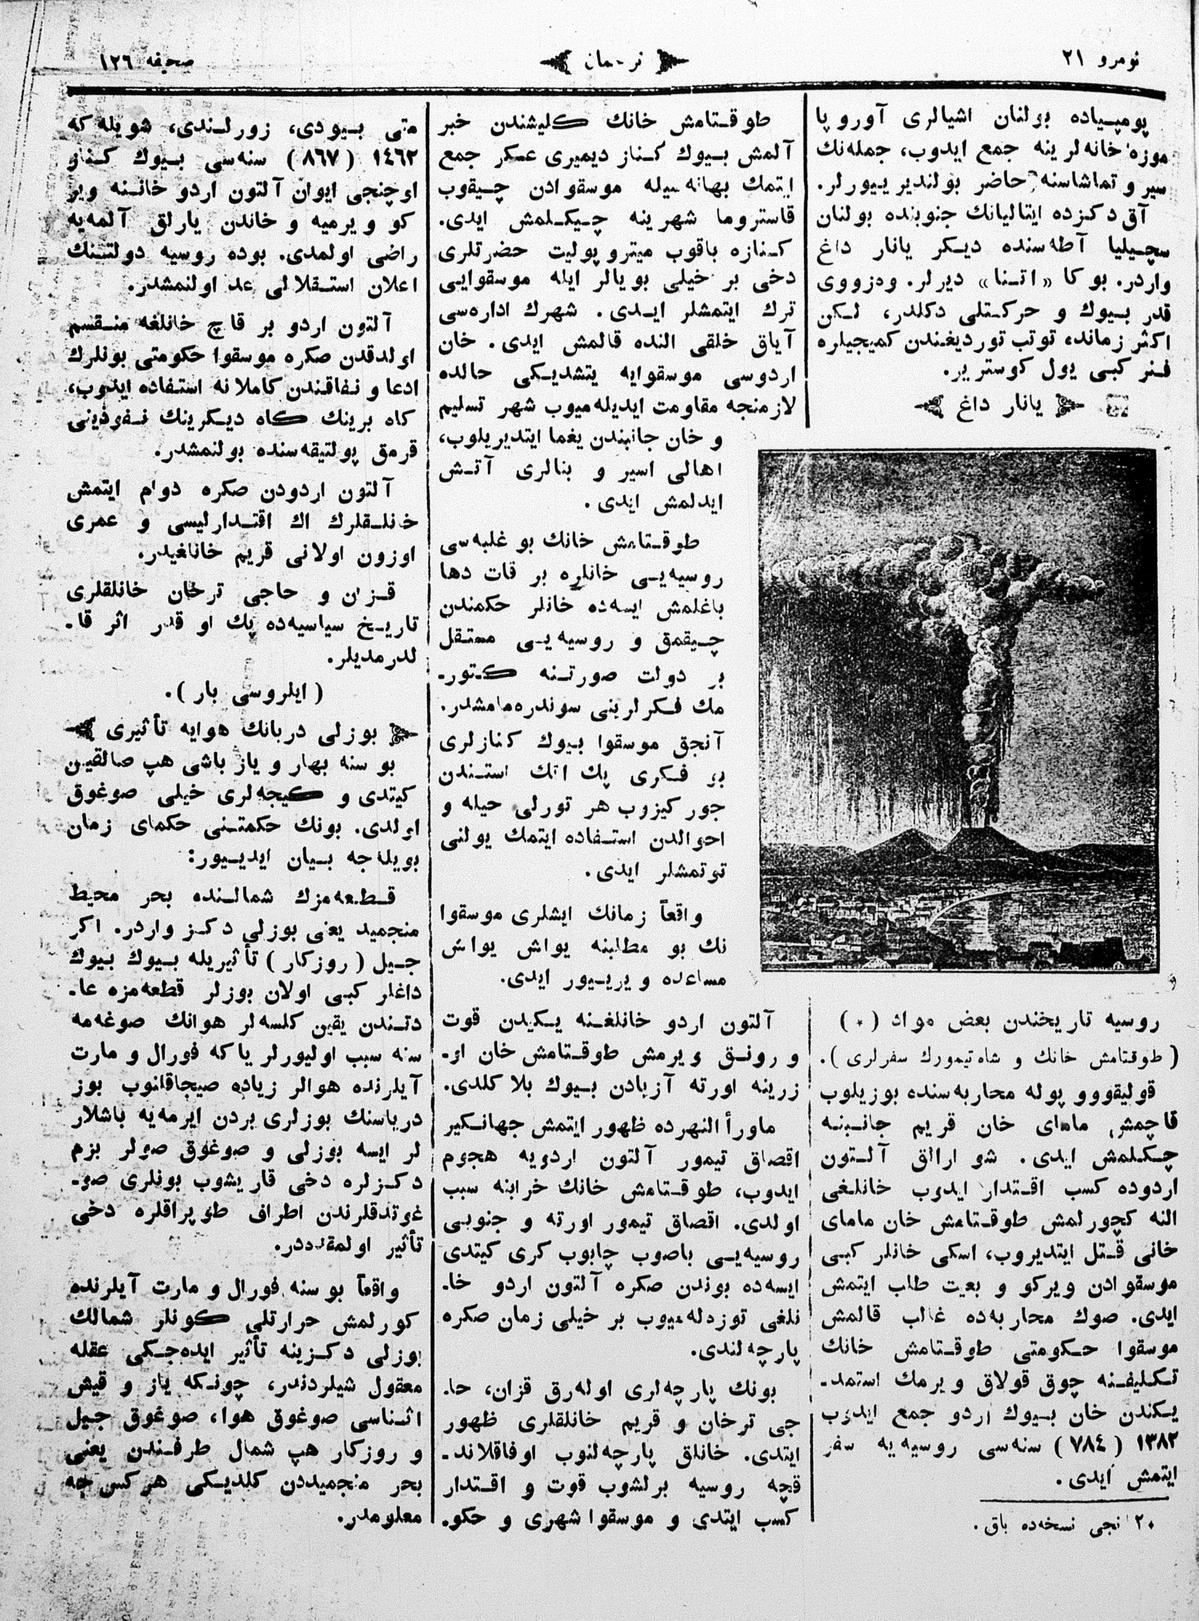 نومرو ٢١
ترجمان
صحیفه ١٢٦
پومپیاده بولنان اشیالری آوروپا
موزه خانه‌لرینه جمع ایدوب، جمله‌نك
سیر و تماشاسنه حاضر بولندیرییورلر.
آق دكزده ایتالیانك جنوبنده بولنان
سچیلیا آطه‌سنده دیكر یانار داغ
واردر. بوكا «اتنا» دیرلر. وه‌زووی
قدر بیوك و حركتلی دكلدر، لكن
اكثر زمانده، توتب توردیغندن كمیجیلره
فنر كبی یول كوستریر.
یانار داغ
روسیه تاریخندن بعض مواد (٭)
(طوقتامش خانك و شاه تیمورك سفرلری).
قولیقووو پوله محاربه‌سنده بوزیلوب
قاچمش مامای خان قریم جانبنه
چكلمش ایدی. شو آرالق آلتون
اردوده كسب اقتدار ایدوب خانلغی
النه كچورلمش طوقتامش خان مامای
خانی قتل ایتدیروب، اسكی خانلر كبی
موسقوادن ویركو و بعیت طلب ایتمش
ایدی. صوك محاربه‌ده غالب قالمش
موسقوا حكومتی طوقتامش خانك
تكلیفنه چوق قولاق ویرمك استمد-
یكندن خان بیوك اردو جمع ایدوب
١٣٨٢ (٧٨٤) سنه‌سی روسیه‌یه سفر
ایتمش ایدی.
٢٠ نجی نسخه‌ده باق.
طوقتامش خانك كلیشندن خبر
آلمش بیوك كناز دیمیری عسكر جمع
ایتمك بهانه‌سیله موسقوادن چیقوب
قاستروما شهرینه چیكلمش ایدی.
كنازه باقوب میتروپولیت حضرتلری
دخی بر خیلی بویالر ایله موسقوایی
ترك ایتمشلر ایدی. شهرك اداره‌سی
آیاق خلقی النده قالمش ایدی. خان
اردوسی موسقوایه یتشدیكی حالده
لازمنجه مقاومت ایدیله‌میوب شهر تسلیم
و خان جانبندن یغما ایتدیریلوب،
اهالی اسیر و بنالری آتش
ایدلمش ایدی.
طوقتامش خانك بو غلبه‌سی
روسیه‌یی خانلره بر قات دها
باغلمش ایسه‌ده خانلر حكمندن
چیقمق و روسیه‌یی مستقل
بر دولت صورتنه كتور-
مك فكرلرینی سوندره‌مامشدر.
آنجق موسقوا بیوك كنازلری
بو فكری پك اتك استندن
جور كیزوب هر تورلی حیله و
احوالدن استفاده ایتمك یولنی
توتمشلر ایدی.
واقعاً زمانك ایشلری موسقوا
نك بو مطلبنه یواش یواش
مساعده ویرییور ایدی.
آلتون اردو خانلغنه یكیدن قوت
و رونق ویرمش طوقتامش خان او-
زرینه اورته آزیادن بیوك بلا كلدی.
ماورأ النهرده ظهور ایتمش جهانكیر
اقصاق تیمور آلتون اردویه هجوم
ایدوب، طوقتامش خانك خرابنه سبب
اولدی. اقصاق تیمور اورته و جنوبی
روسیه‌یی باصوب چابوب كری كیتدی
ایسه‌ده بوندن صكره آلتون اردو خا-
نلغی توزدله‌میوب بر خیلی زمان صكره
پارچه‌لندی.
بونك پارچه‌لری اوله‌رق قزان، حا-
جی ترخان و قریم خانلقلری ظهور
ایتدی. خانلق پارچه‌لنوب اوفاقلاند-
قچه روسیه برلشوب قوت و اقتدار
كسب ایتدی و موسقوا شهری و حكو-
متی بیودی، زورلندی، شویله كه
١٤٦٢ (٨٦٧) سنه‌سی بیوك كناز
اوچنجی ایوان آلتون اردو خاننه ویر
كو ویرمیه و خاندن یارلق آلمه‌یه
راضی اولمدی. بوده روسیه دولتنك
اعلان استقلالی عد اولنمشدر.
آلتون اردو بر قاچ خانلغه منقسم
اولدقدن صكره موسقوا حكومتی بونلرك
ادعا و نفاقندن كاملانه استفاده ایدوب،
كاه برینك كاه دیكرینك نفوذینی
قرمق پولتیقه‌سنده بولنمشدر.
آلتون اردودن صكره دوام ایتمش
خانلقلرك اك اقتدارلیسی و عمری
اوزون اولانی قریم خانلغیدر.
قزان و حاجی ترخان خانلقلری
تاریخ سیاسیه‌ده پك او قدر اثر قا-
لدرمدیلر.
(ایلروسی بار).
بوزلی دریانك هوایه تأثیری
بو سنه بهار و یاز باشی هپ صالقین
كیتدی و كیجه‌لری خیلی صوغوق
اولدی. بونك حكمتنی حكمای زمان
بویله‌جه بیان ایدییور:
قطعه‌مزك شمالنده بحر محیط
منجمید یعنی بوزلی دكز واردر. اكر
جیل (روزكار) تأثیریله بیوك بیوك
داغلر كبی اولان بوزلر قطعه‌مزه عا-
دتندن یقین كلسه‌لر هوانك صوغه‌مه
سنه سبب اولیورلر یا كه فورال و مارت
آیلرنده هوالر زیاده صیجاقلنوب بوز
دریاسنك بوزلری بردن ایرمه‌یه باشلار
لر ایسه بوزلی و صوغوق صولر بزم
دكزلره دخی قاریشوب بونلری صو-
غوتدقلرندن اطراف طوپراقلره دخی
تأثیر اولمقده‌در.
واقعاً بو سنه فورال و مارت آیلرنده
كورلمش حرارتلی كونلر شمالك
بوزلی دكزینه تأثیر ایده‌جكی عقله
معقول شیلردندر، چونكه یاز و قیش
اثناسی صوغوق هوا، صوغوق جیل
و روزكار هپ شمال طرفندن یعنی
بحر منجمیددن كلدیكی هركس‌جه
معلومدر.